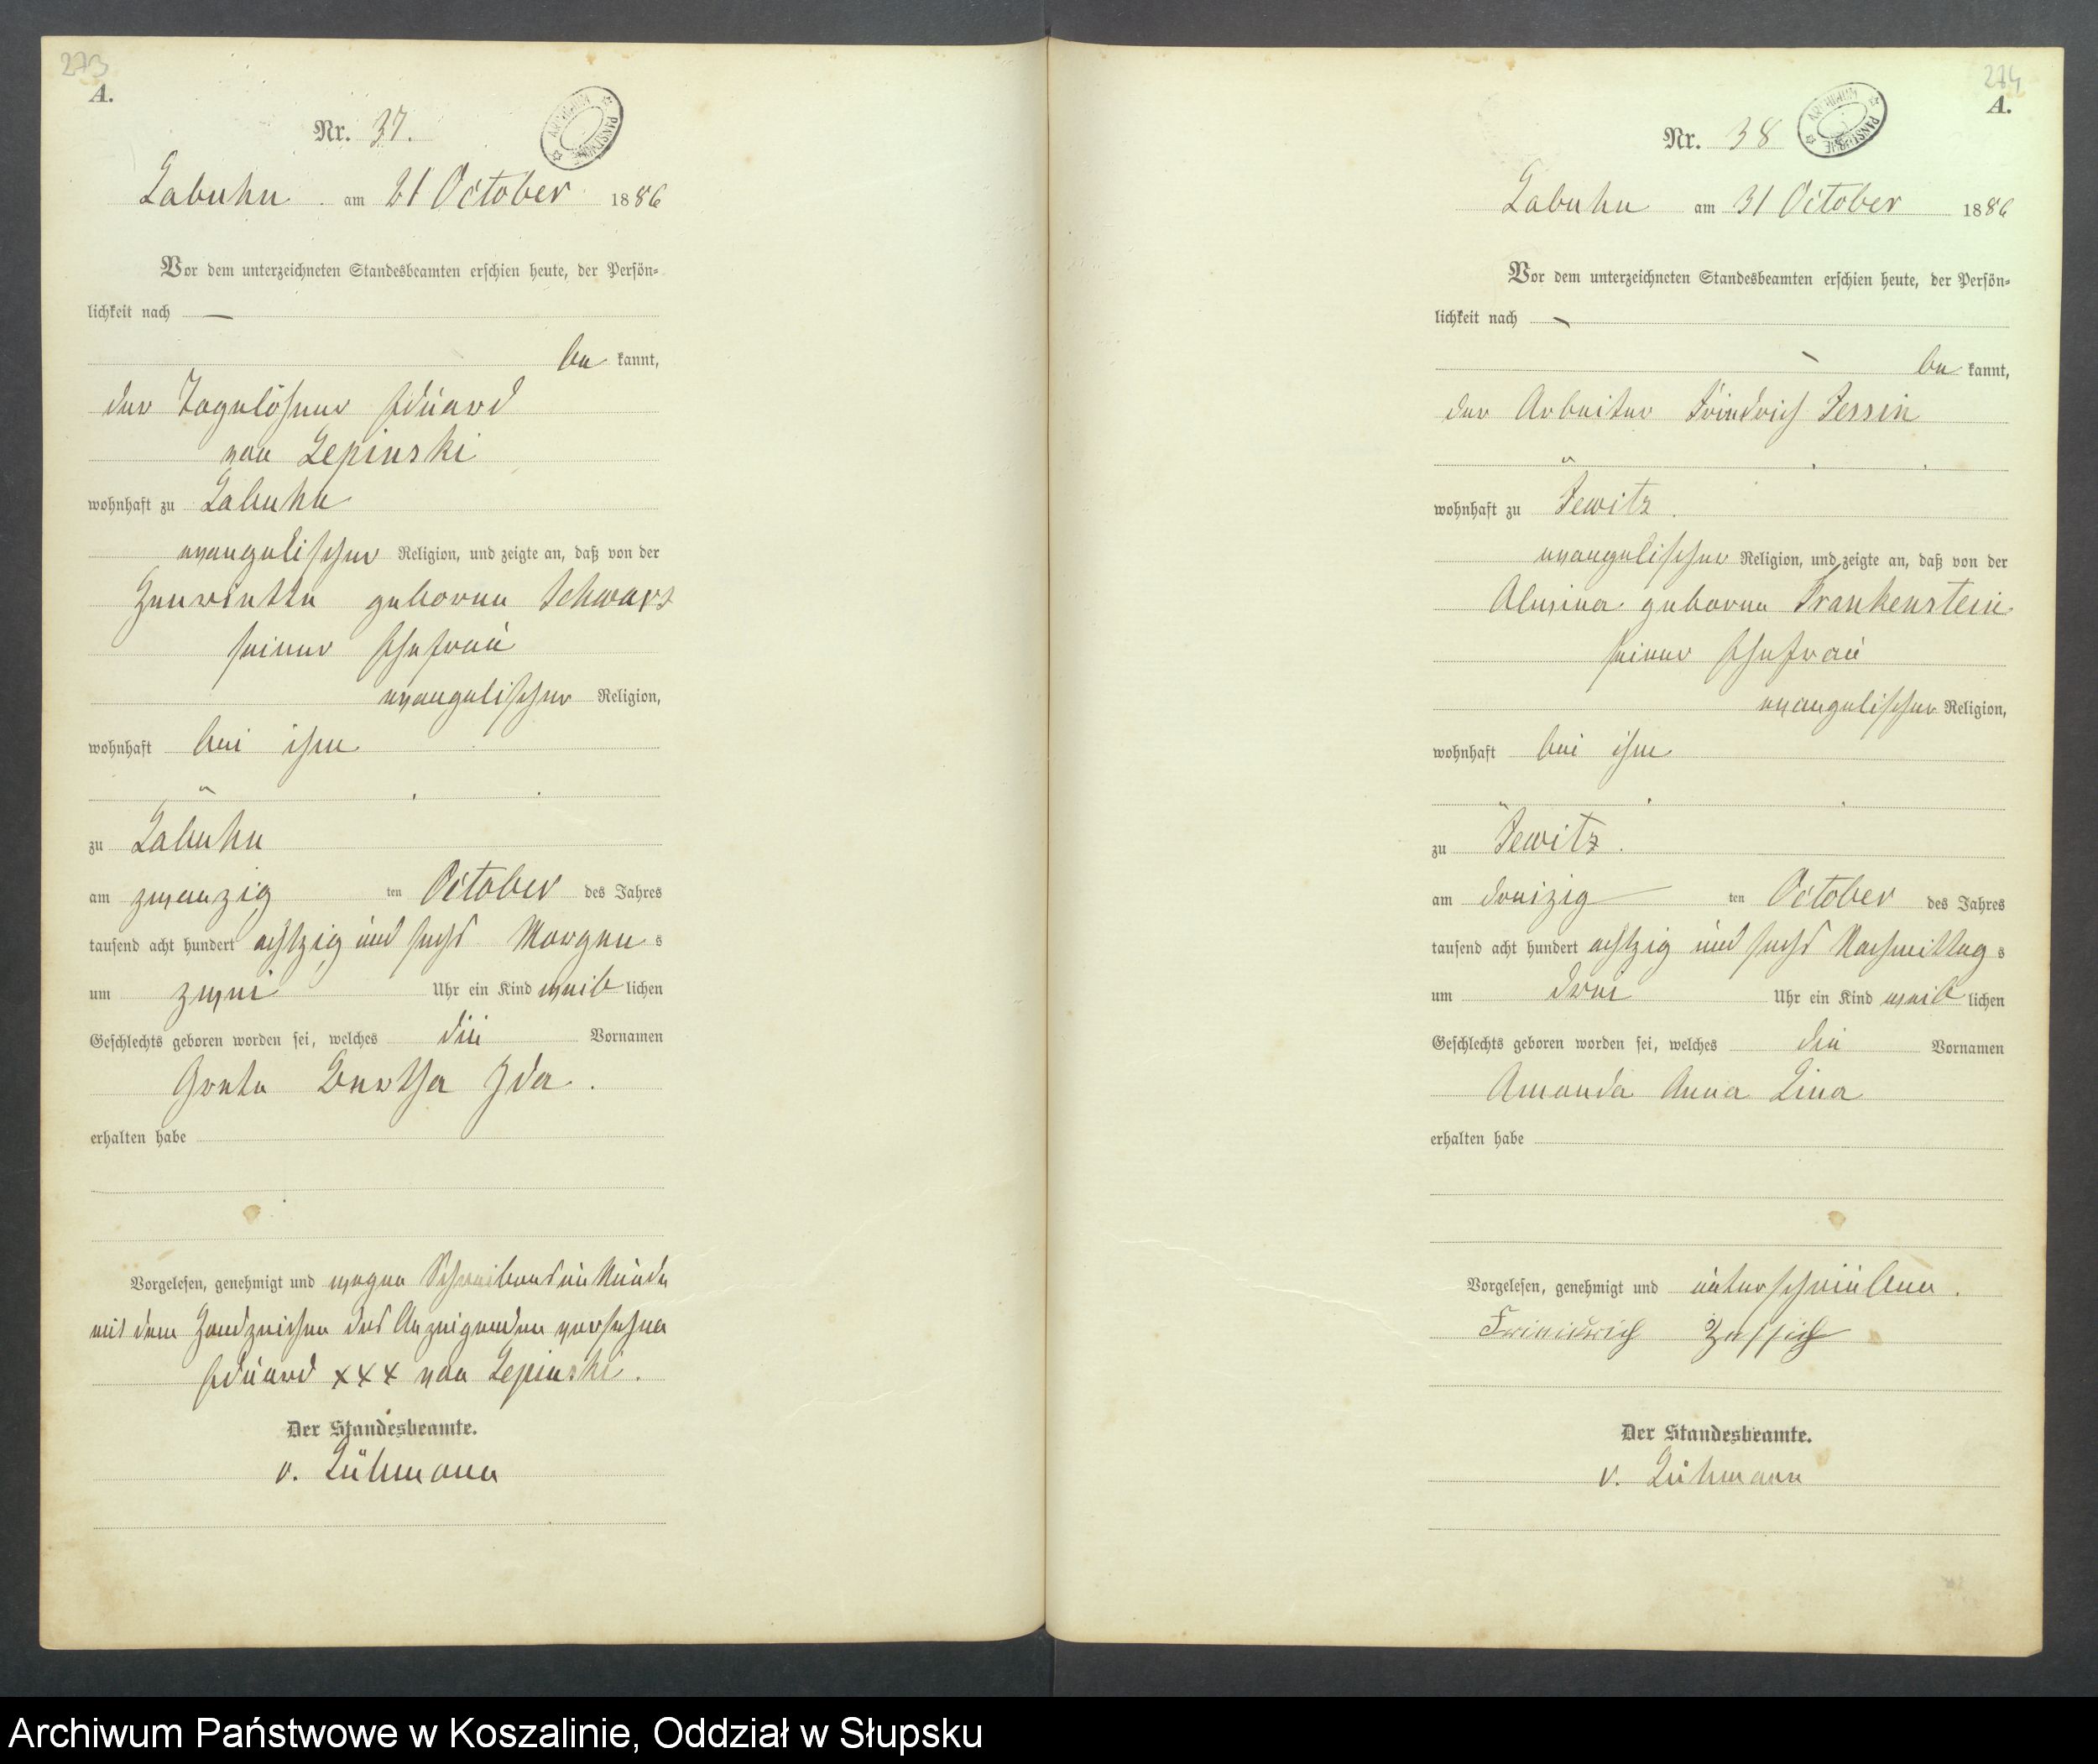 273
A.
Nr. 37.
ARCHIWUM PAŃSTWOWE
Labuhn am 21 October 1886
Vor dem unterzeichneten Standesbeamten erschien heute, der Persön-
lichkeit nach —
be kannt,
der Tagelöhner Eduard
von Lepinski
wohnhaft zu Labuhn
evangelischer Religion, und zeigte an, daß von der
Henriette geborne Schwarz
seiner Ehefrau
evangelischer Religion,
wohnhaft bei ihm
zu Labuhn
am zwanzig ten October des Jahres
tausend acht hundert achtzig und sechs Morgens
um zwei Uhr ein Kind weiblichen
Geschlechts geboren worden sei, welches die Vornamen
Grete Bertha Ida.
erhalten habe
Vorgelesen, genehmigt und wegen Schreibensunkunde
mit dem Handzeichen des Anzeigenden versehen
Eduard xxx von Lepinski.
Der Standesbeamte.
v. Lühmann
274
A.
Nr. 38
ARCHIWUM PAŃSTWOWE
Labuhn am 31 October 1886
Vor dem unterzeichneten Standesbeamten erschien heute, der Persön-
lichkeit nach —
be kannt,
der Arbeiter Friedrich Jessin
wohnhaft zu Jewitz.
evangelischer Religion, und zeigte an, daß von der
geborne Frankenstein
seiner Ehefrau
evangelischer Religion,
wohnhaft bei ihm
zu Jewitz.
am dreizig ten October des Jahres
tausend acht hundert achtzig und sechs Nachmittags
um drei Uhr ein Kind weiblichen
Geschlechts geboren worden sei, welches die Vornamen
Amanda Anna Lina
erhalten habe
Vorgelesen, genehmigt und unterschrieben.
Der Standesbeamte.
v. Lühmann
Archiwum Państwowe w Koszalinie, Oddział w Słupsku